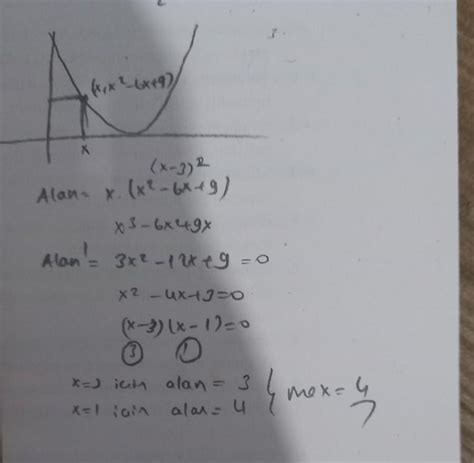 (x, x² - 6x + 9)
x
(x-3)²
Alan = x . (x² - 6x + 9)
x³ - 6x² + 9x
Alan' = 3x² - 12x + 9 = 0
x² - 4x + 3 = 0
(x-3)(x-1) = 0
3 1
x=3 için alan = 3
x=1 için alan = 4
max = 4